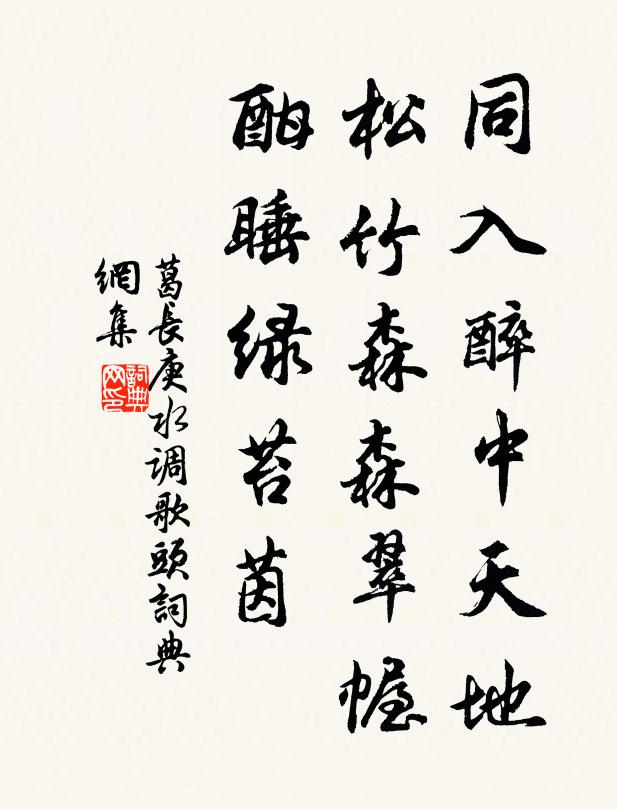 同入醉中天地
松竹森森翠幄
酣睡绿苔茵
葛長庚水调歌頭詞典
網集
詞典網印